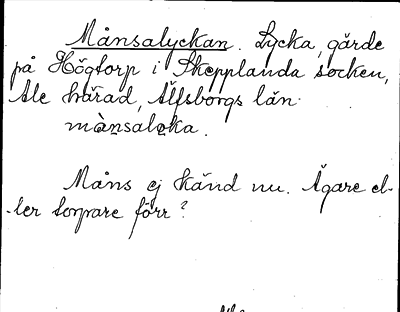 Månsalyckan. Lycka, gärde
på Högtorp i Skepplanda socken,
Ale härad, Älfsborgs län.
mànsalọka.
Måns ej känd nu. Ägare el-
-ler torpare förr?